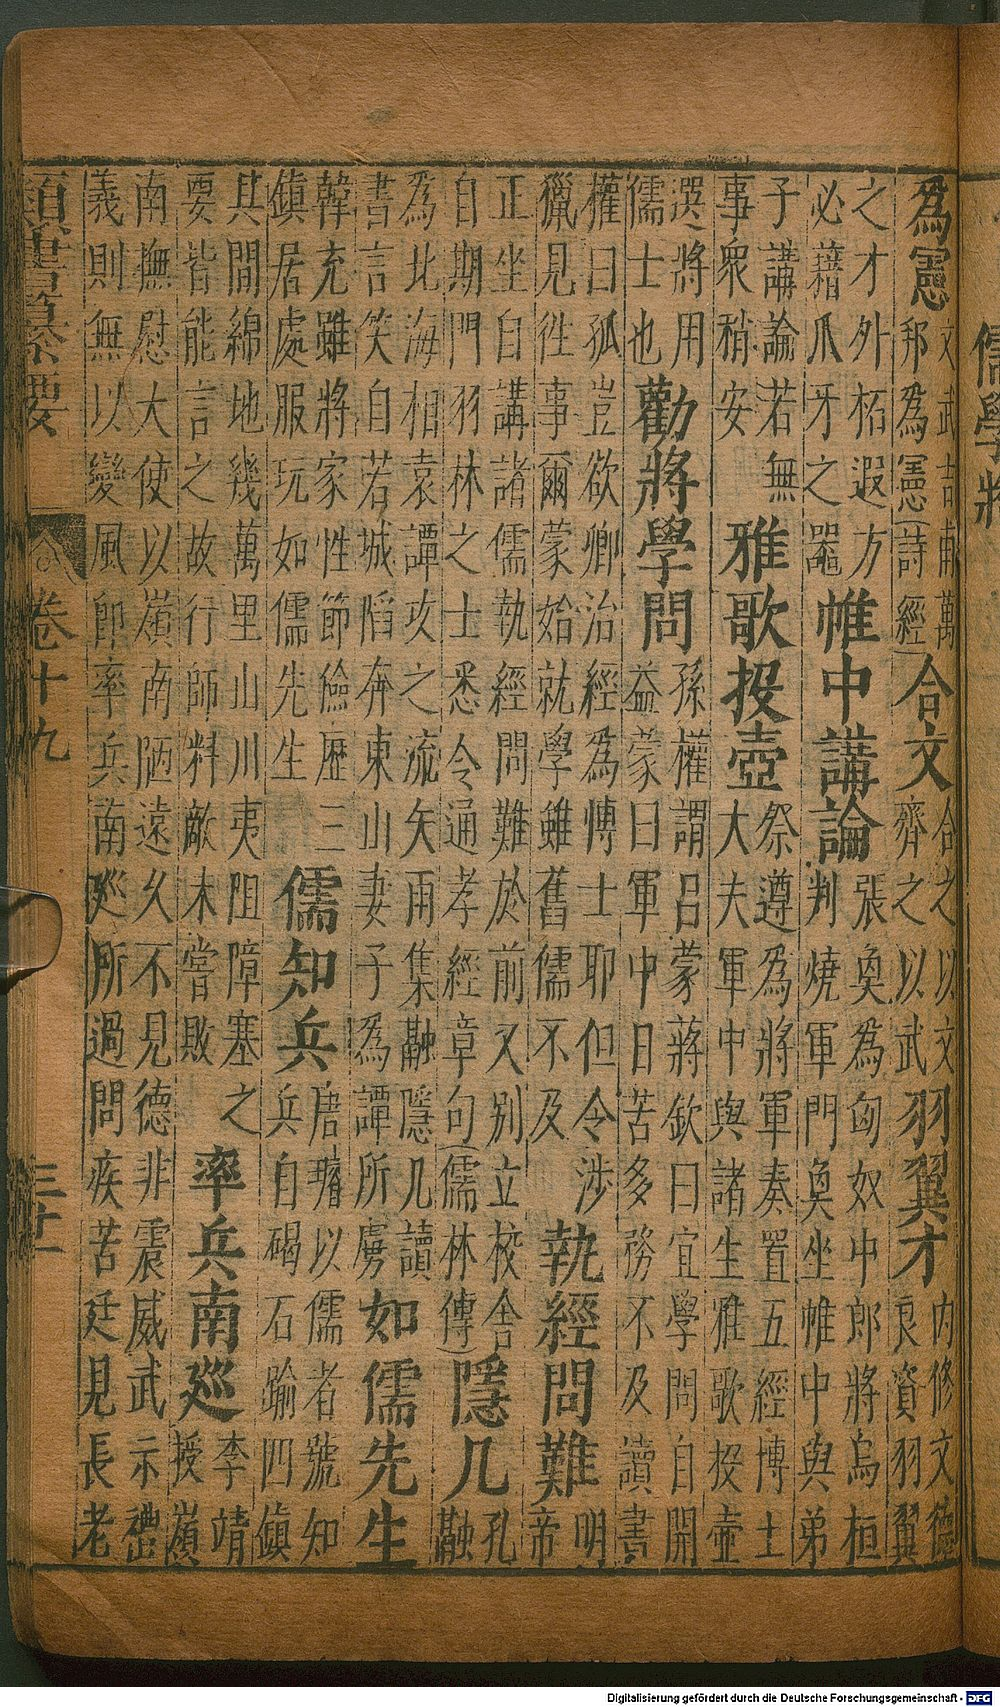 儒學將
為憲
文武吉甫萬
邦為憲(詩經)
合文
合之以文
齊之以武
羽翼才
內修文德
良資羽翼
之才外柘遐方
必藉爪牙之噐
帷中講論
張奐為匈奴中郎將烏桓
判燒軍門奐坐帷中與弟
子講論若無
事衆稍安
雅歌投壺
祭遵為將軍奏置五經博士
大夫軍中與諸生雅歌投壺
選將用
儒士也
勸將學問
孫權謂呂蒙蔣欽曰宜學問自開
益蒙曰軍中日苦多務不及讀書
權曰孤豈欲卿治經為博士耶但令涉
獵見徃事爾蒙始就學雖舊儒不及
執經問難
明
帝
正坐自講諸儒執經問難於前又別立校舍
自期門羽林之士悉令通孝經章句(儒林傳)
隱几
孔
融
為北海相袁譚攻之流矢雨集融隱几讀
書言笑自若城陷奔東山妻子為譚所虜
如儒先生
韓充雖將家性節儉歷三
鎮居處服玩如儒先生
儒知兵
唐璿以儒者號知
兵自碣石踰四鎮
其間綿地幾萬里山川夷阻障塞之
要皆能言之故行師料敵未嘗敗
率兵南廵
李靖
授嶺
南撫慰大使以嶺南陋遠久不見德非震威武示禮
義則無以變風即率兵南廵所過問疾苦廷見長老
類書纂要
卷十九
Digitalisierung gefördert durch die Deutsche Forschungsgemeinschaft - DFG